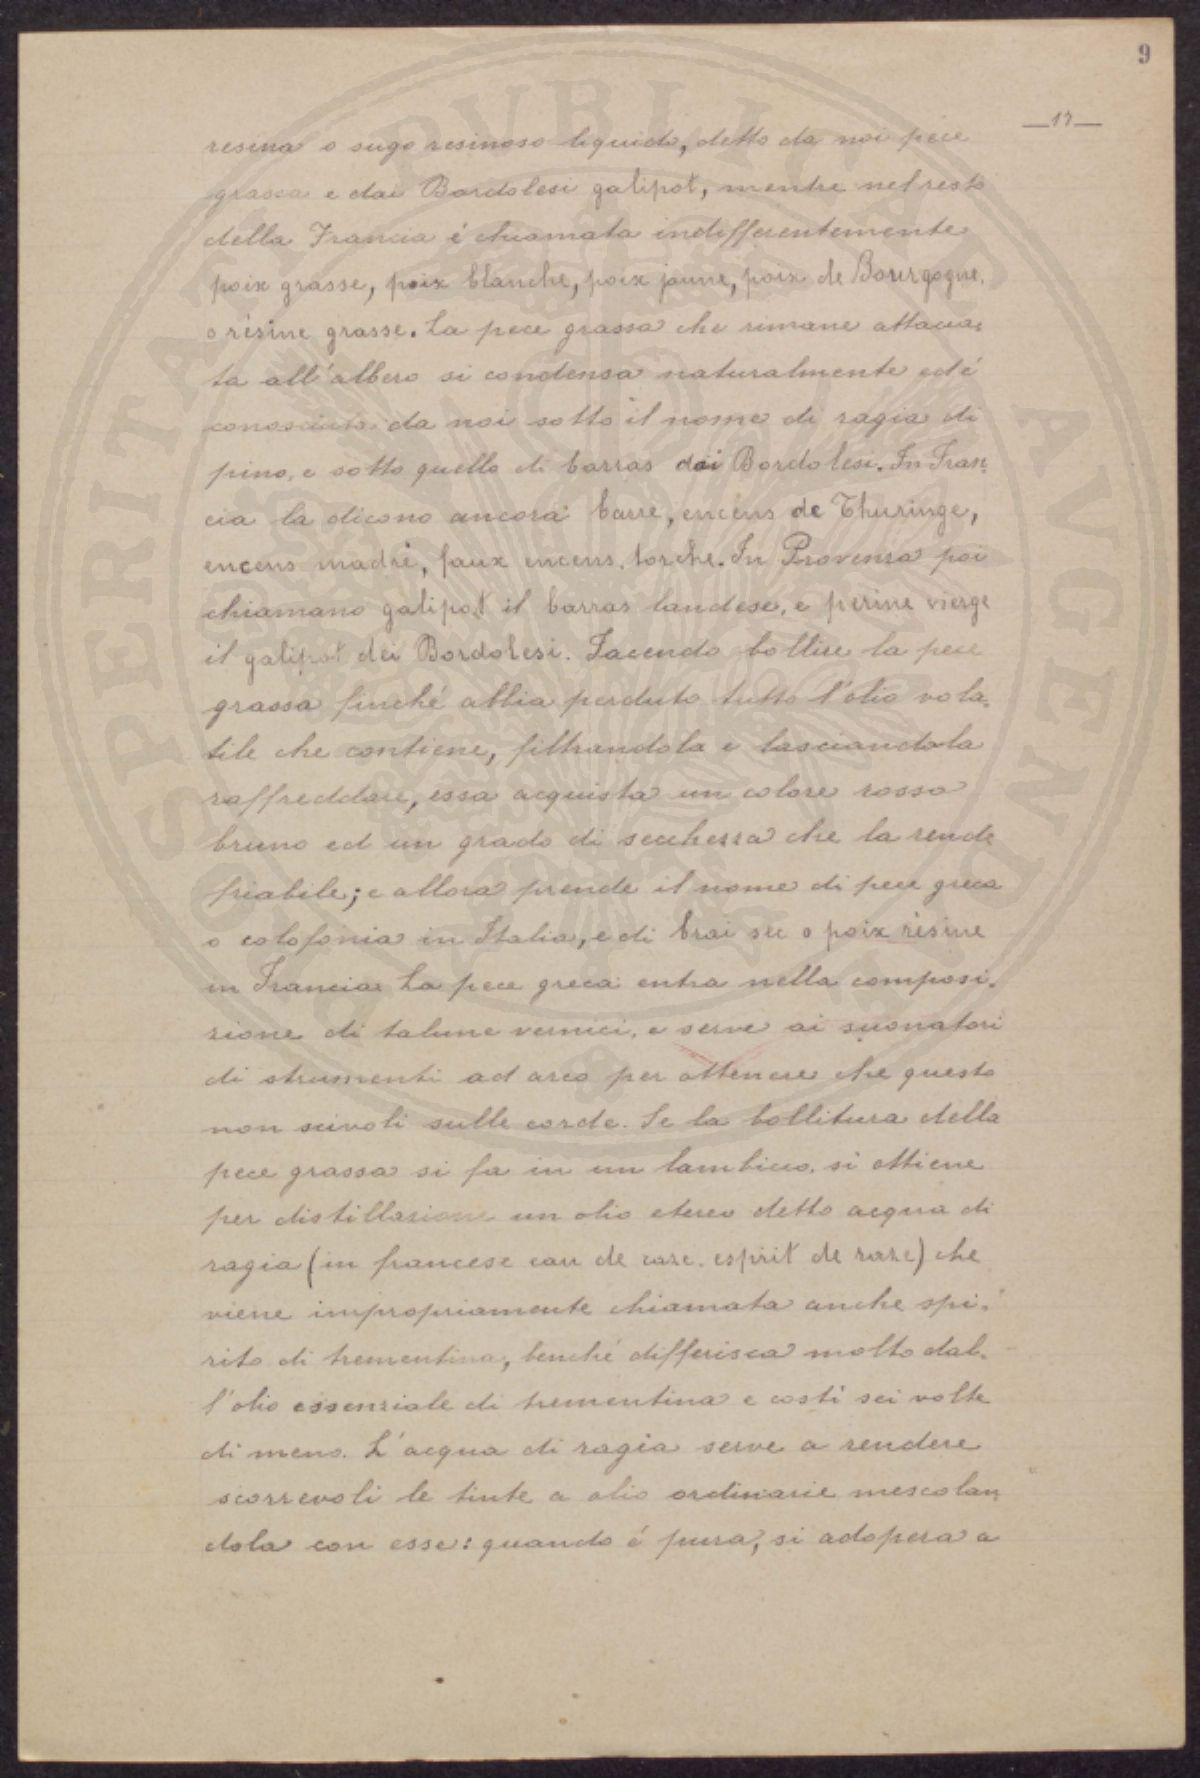 9
17
resina o sugo resinoso liquido, detto da noi pece
grassa e dai Bordolesi galipot, mentre nel resto
della Francia é chiamata indifferentemente
poix grasse, poix blanche, poix jaune, poix de Bourgogne,
o résine grasse. La pece grassa che rimane attacca=
ta all'albero si condensa naturalmente ed é
conosciuta da noi sotto il nome di ragia di
pino, e sotto quello di barras dai Bordolesi. In Fran=
cia la dicono ancora barre, encens de Thuringe,
encens madré, faux encens, torche. In Provenza poi
chiamano galipot il barras landese, e perine vierge
il galipot dei Bordolesi. Facendo bollire la pece
grassa finché abbia perduto tutto l'olio vola=
tile che contiene, filtrandola e lasciandola
raffreddare, essa acquista un colore rosso
bruno ed un grado di secchezza che la rende
friabile; e allora prende il nome di pece greca
o colofonia in Italia, e di brai sec o poix résine
in Francia. La pece greca entra nella composi=
zione di talune vernici, e serve ai suonatori
di strumenti ad arco per ottenere che questo
non scivoli sulle corde. Se la bollitura della
pece grassa si fa in un lambicco, si ottiene
per distillazione un olio etereo detto acqua di
ragia (in francese eau de raze, esprit de raze) che
viene impropriamente chiamata anche spi=
rito di trementina, benché differisca molto dal=
l'olio essenziale di trementina e costi sei volte
di meno. L'acqua di ragia serve a rendere
scorrevoli le tinte a olio ordinarie mescolan=
dola con esse: quando é pura, si adopera a
PROSPERITATI PVBLICAE AVGENDAE